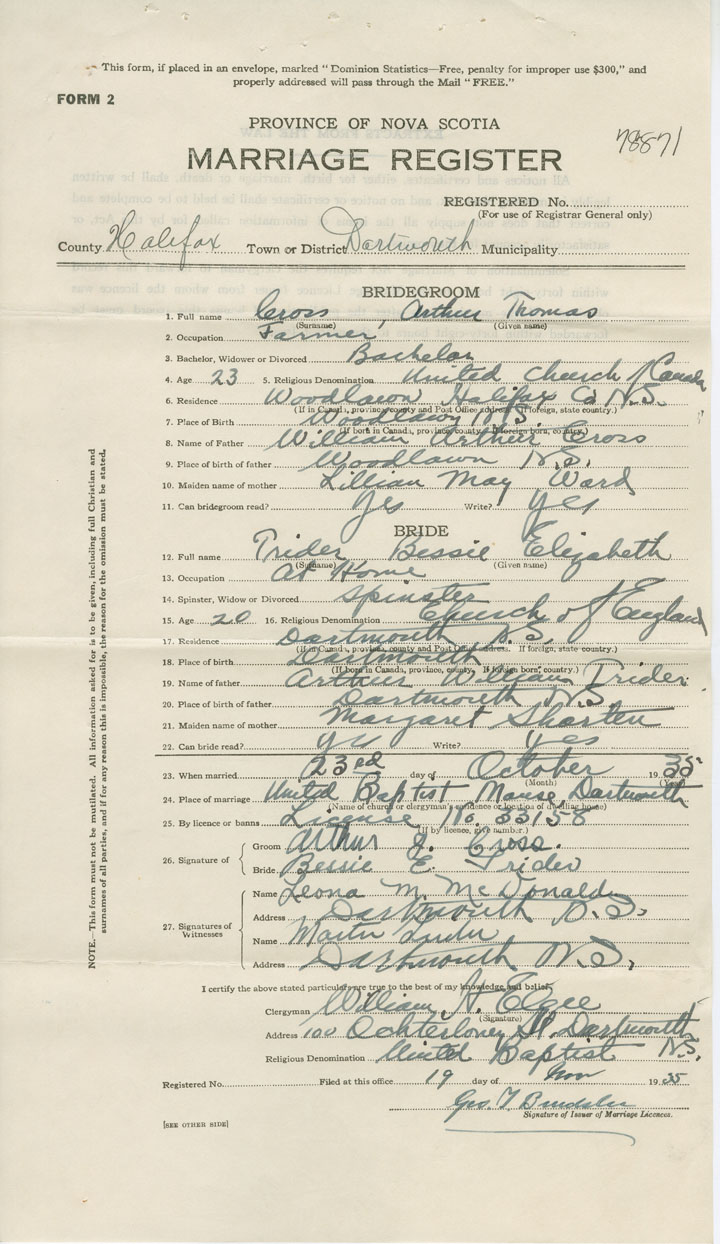 This form, if placed in an envelope, marked "Dominion Statistics—Free, penalty for improper use $300," and
properly addressed will pass through the Mail "FREE."
FORM 2
PROVINCE OF NOVA SCOTIA
78871
MARRIAGE REGISTER
REGISTERED No.
(For use of Registrar General only)
County Halifax Town or District Dartmouth Municipality
BRIDEGROOM
1. Full name Cross, Arthur Thomas
(Surname) (Given name)
2. Occupation Farmer
3. Bachelor, Widower or Divorced Bachelor
4. Age 23 5. Religious Denomination United Church of Canada
6. Residence Woodlawn Halifax Co N.S.
(If in Canada, province, county and Post Office address. If foreign, state country.)
7. Place of Birth Woodlawn N.S.
(If born in Canada, province, county. If foreign born, country.)
8. Name of Father William Arthur Cross
9. Place of birth of father Woodlawn N.S.
10. Maiden name of mother Lillian May Ward
11. Can bridegroom read? Yes Write? Yes
BRIDE
12. Full name Trider Bessie Elizabeth
(Surname) (Given name)
13. Occupation At Home
14. Spinster, Widow or Divorced Spinster
15. Age 20 16. Religious Denomination Church of England
17. Residence Dartmouth N.S.
(If in Canada, province, county and Post Office address. If foreign, state country.)
18. Place of birth Dartmouth
(If born in Canada, province, county. If foreign born, country.)
19. Name of father Arthur William Trider
20. Place of birth of father Dartmouth N.S
21. Maiden name of mother Margaret
22. Can bride read? Yes Write? Yes
23. When married 23ed day of October 1935
(Month) (Year)
24. Place of marriage United Baptist Manse, Dartmouth
(Name of church or clergyman's residence or location of dwelling house)
25. By licence or banns License No. 33158
(If by licence, give number.)
26. Signature of
Groom Arthur J. Cross.
Bride Bessie E. Trider
27. Signatures of Witnesses
Name Leona M. McDonald
Address Dartmouth N.S.
Name
Address Dartmouth N.S.
I certify the above stated particulars are true to the best of my knowledge and belief.
Clergyman William A. Elgee
(Signature)
Address 100 Ochterloney St. Dartmouth N.S.
Religious Denomination United Baptist
Registered No. Filed at this office 19 day of Nov 1935
Geo. T
Signature of Issuer of Marriage Licences.
[SEE OTHER SIDE]
NOTE.—This form must not be mutilated. All information asked for is to be given, including full Christian and
surnames of all parties, and if for any reason this is impossible, the reason for the omission must be stated.